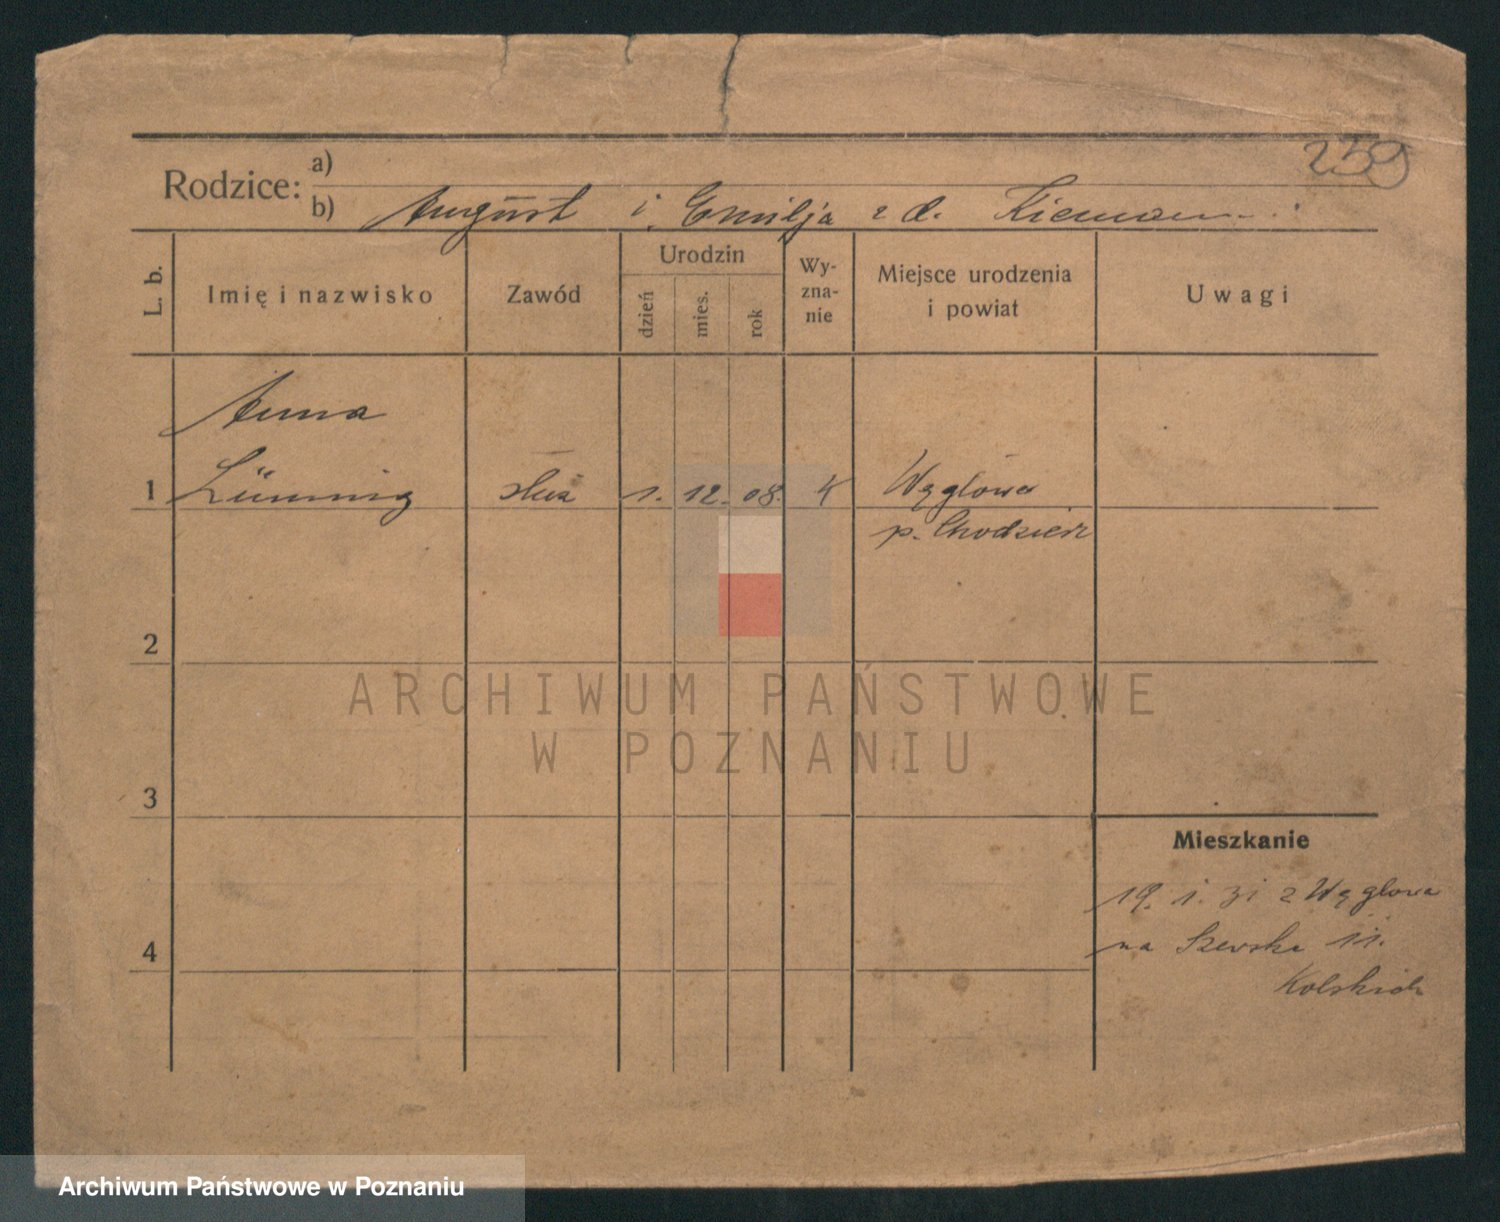 239
Rodzice: a)
b) August i Emilja z d.
L. b.
Imię i nazwisko
Zawód
Urodzin
dzień
mies.
rok
Wy-
zna-
nie
Miejsce urodzenia
i powiat
Uwagi
Anna
1 Lünning służ 1. 12. 08. K Węglowa
p. Chodzież
2
ARCHIWUM PAŃSTWOWE
W POZNANIU
3
Mieszkanie
19. 1. 31 z Węglowa
4
na Szewska 11.
Kolskich
Archiwum Państwowe w Poznaniu